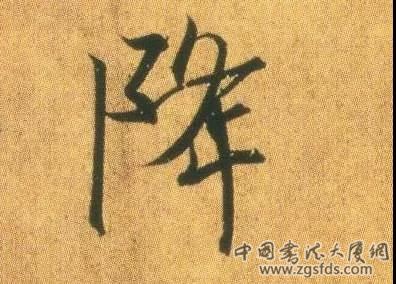 降
中国书法大厦網
www.zgsfds.com